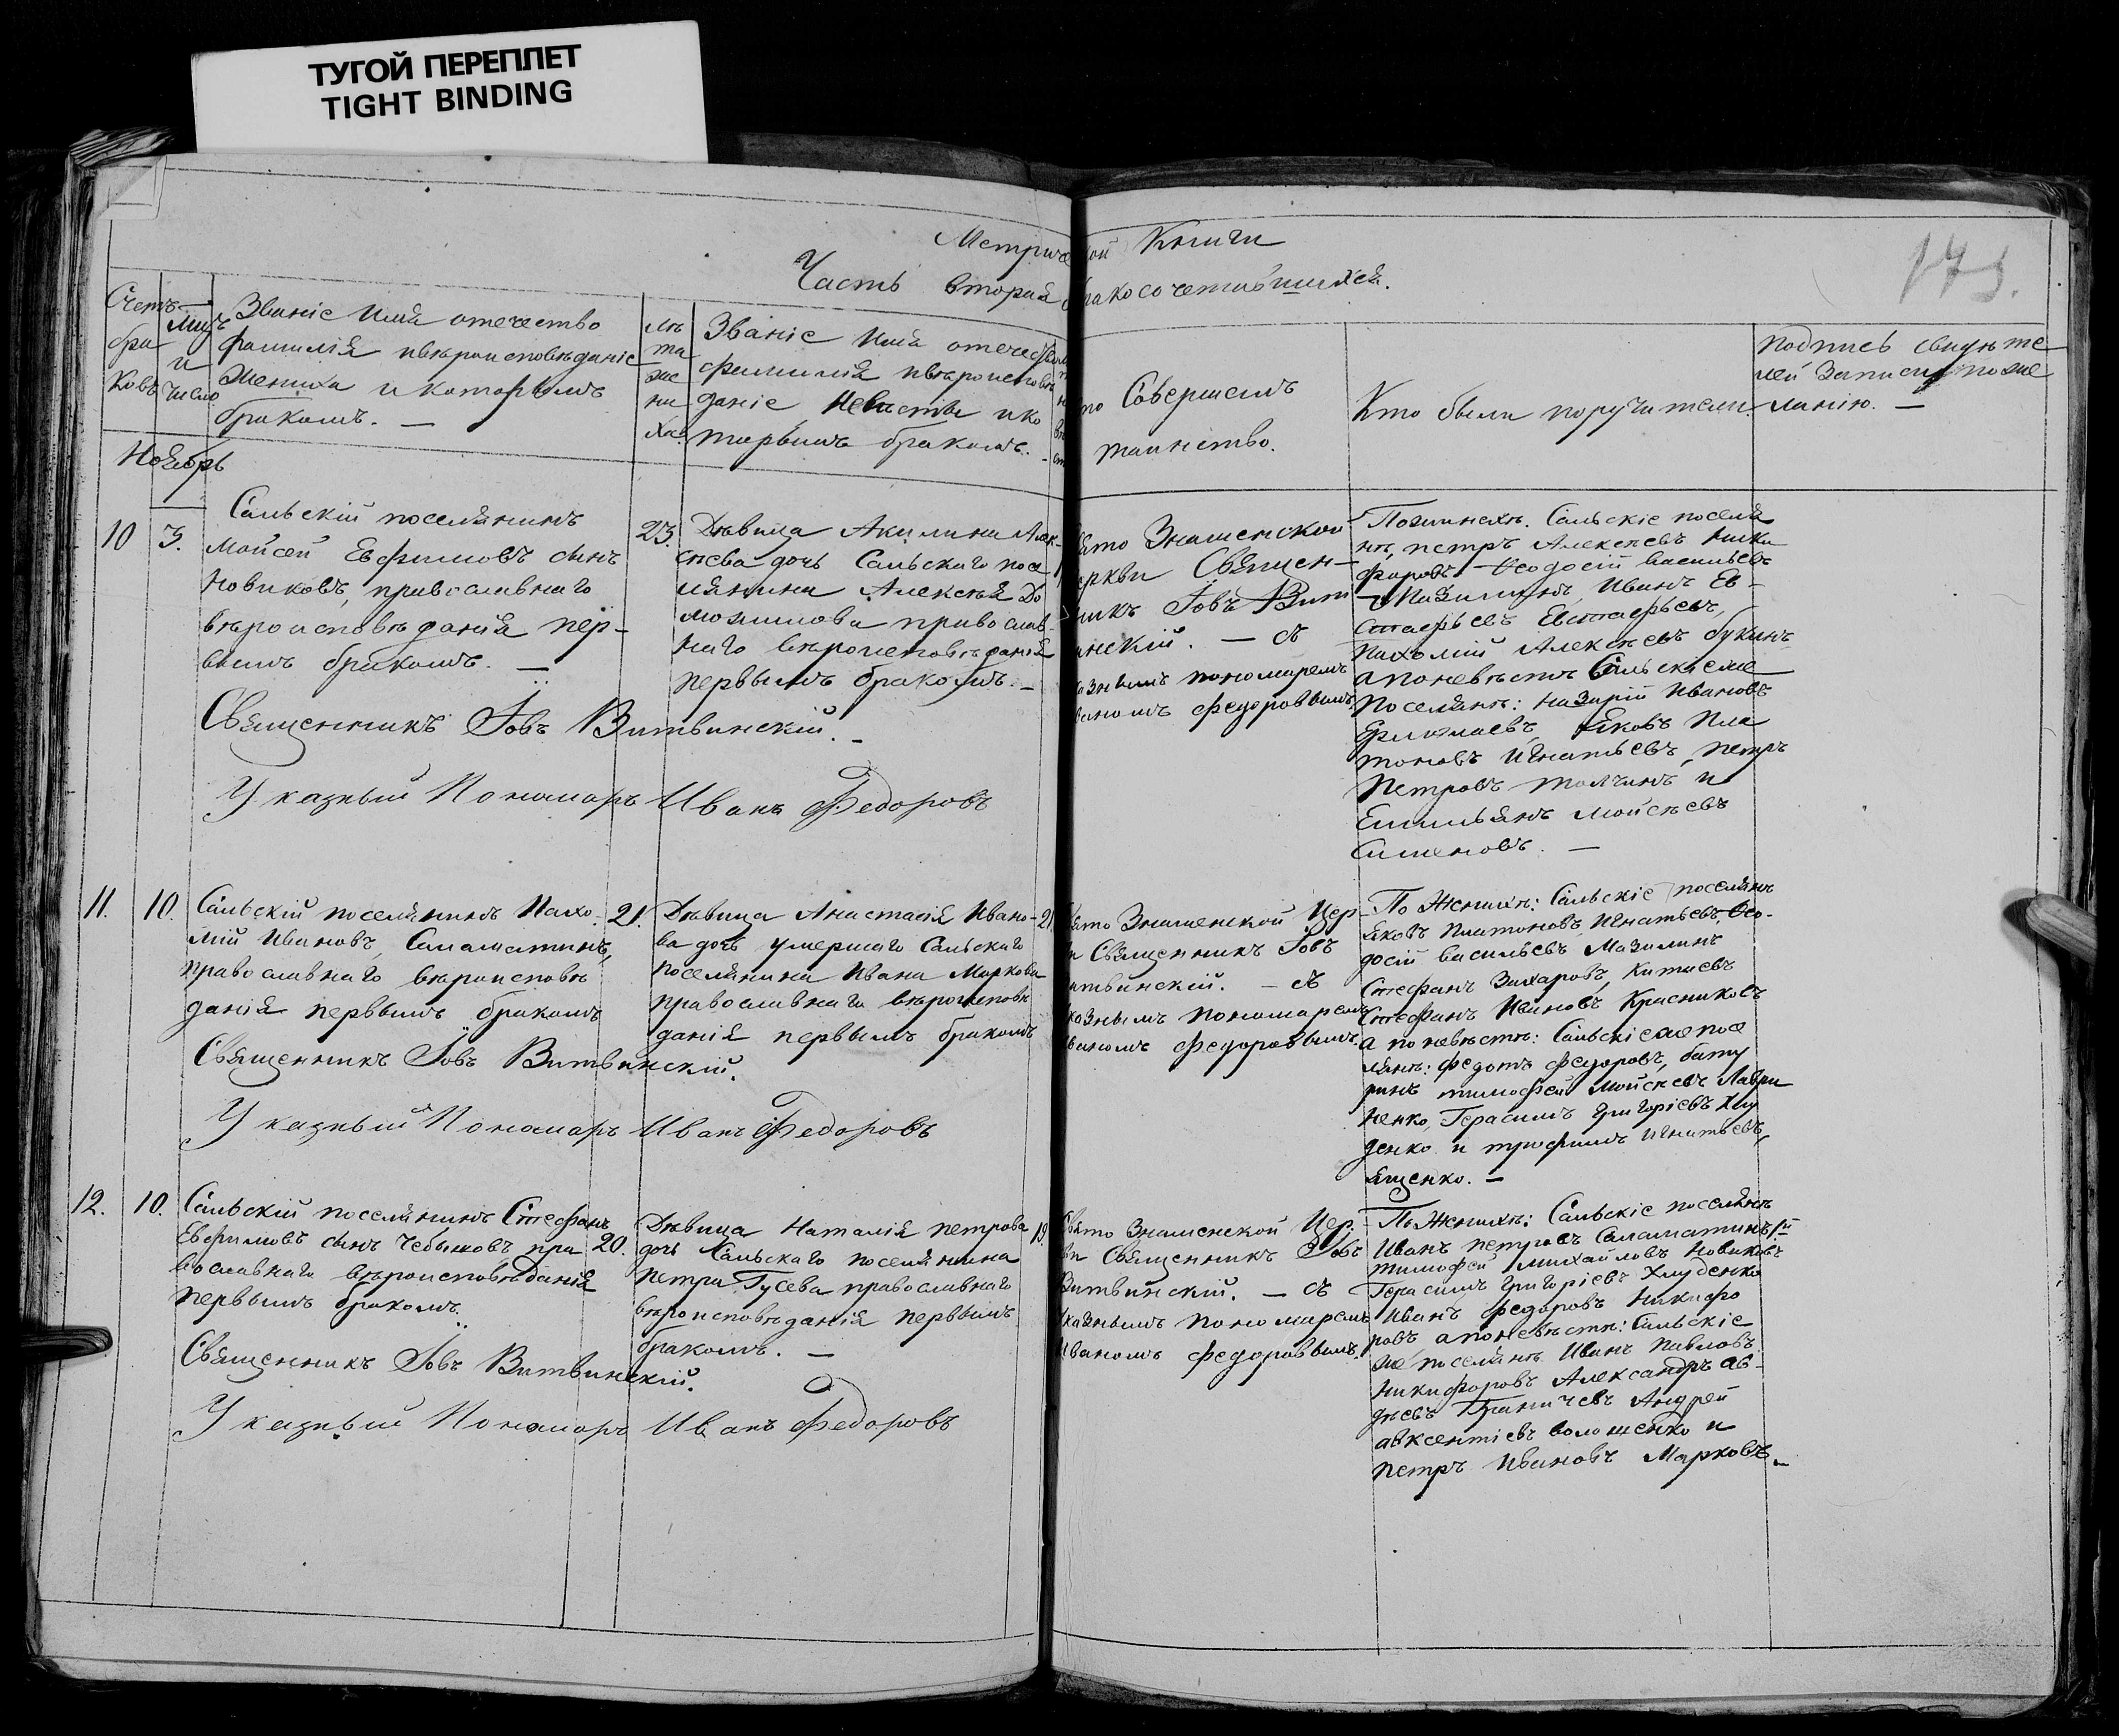 ТУГОЙ ПЕРЕПЛЕТ
TIGHT BINDING
Метриче ой Книги
Часть вторая бракосочетавшихся.
173.
Счетъ
бра
ковъ
Мцъ
и
число
Званіе Имя отечество
фамилія ивѣроисповѣданіе
Жениха и которымъ
бракомъ. —
Лѣ
та
же
ни
ха.
Званіе Имя отечество
фамилія ивѣроисповѣ
даніе Невѣсты ико
торымъ бракомъ. -
то Совершалъ
таинство.
Кто были поручители
Подпись свидѣте
лей записи поже
ланію. —
Ноябрь
10
3.
Сальскій поселянинъ
Мойсей Евфимовъ сынъ
Новиковъ, православнаго
вѣроисповѣданія пер-
вымъ бракомъ. —
23.
Дѣвица Акилина Алек-
сѣева дочь Сальскаго посе
лянина Алексѣя До
можилова православ-
наго вѣроисповѣданія
первымъ бракомъ. -
вято Знаменской
еркви Священ-
никъ Іовъ Вит
инскій. — съ
казнымъ пономаремъ
ваномъ Федоровымъ
Пожинихѣ. Сальскіе поселя
нѣ, петръ Алексѣевъ Ники
форовъ Ѳеодосій васильевъ
Мазилинъ, Иванъ Ев-
стафьевъ Евстафьевъ,
пахомій Алексѣевъ букинъ
апоневѣстѣ Сальскіеже
поселянѣ: Назарій Ивановъ
Ермолаевъ, Яковъ Пла
тоновъ Игнатьевъ, петръ
Петровъ Толчинъ и
Емильянъ Мойсѣевъ
Сименовъ. —
Священникъ Іовъ Витвинскій. -
Указный Пономарь Иванъ Федоровъ
11.
10.
Сальскій поселянинъ Пахо-
мій Ивановъ, Саламатинъ,
православнаго вѣроисповѣ
данія первымъ бракомъ
21.
Дѣвица Анастасія Ивано-
ва дочь умершаго Сальскаго
поселянина Ивана Маркова
православнаго вѣроисповѣ
данія первымъ бракомъ
21
вято Знаменской Цер-
и Священникъ Іовъ
итвинскій. — съ
казнымъ пономаремъ
ваномъ Федоровымъ.
По Женихѣ: Сальскіе поселянѣ
яковъ Платоновъ Игнатьевъ, Ѳео-
досій васильевъ Мазилинъ
Стефанъ Захаровъ, Китаевъ
Стефанъ Ивановъ Красниковъ
а по невѣстѣ: Сальскіеже посе
лянѣ: Федотъ Федоровъ, бату
ринъ тимофей Мойсѣевъ Лаври
ненко, Герасимъ Григоріевъ Хлу
денко и трофимъ Игнатьевъ,
ященко. —
Священникъ Іовъ Витвинскій.
Указный Пономарь Иванъ Федоровъ
12.
10.
Сальскій поселянинъ Стефанъ
Евфимовъ сынъ Чебыковъ пра
вославнаго вѣроисповѣданія
первымъ бракомъ.
20.
Дѣвица Наталія петрова
дочь Сальскаго поселянина
петра Гусева православнаго
вѣроисповѣданія первымъ
бракомъ. —
19.
Свято Знаменской Цер.
ви Священникъ Іовъ
Витвинскій. — съ
указнымъ пономаремъ
Иваномъ Федоровымъ.
По Женихѣ: Сальскіе поселянѣ
Иванъ петровъ Саламатинъ 1й
тимофей михайловъ Новиковъ
Герасимъ Григоріевъ Хлуденко
Иванъ Федоровъ Никифо
ровъ, апоневѣстѣ: Сальскіе
же поселянѣ Иванъ Павловъ
Никифоровъ Александръ ав-
дѣевъ Андрей
авксентіевъ волошенко и
Петръ Ивановъ Марковъ. -
Священникъ Іовъ Витвинскій.
Указный Пономарь Иванъ Федоровъ